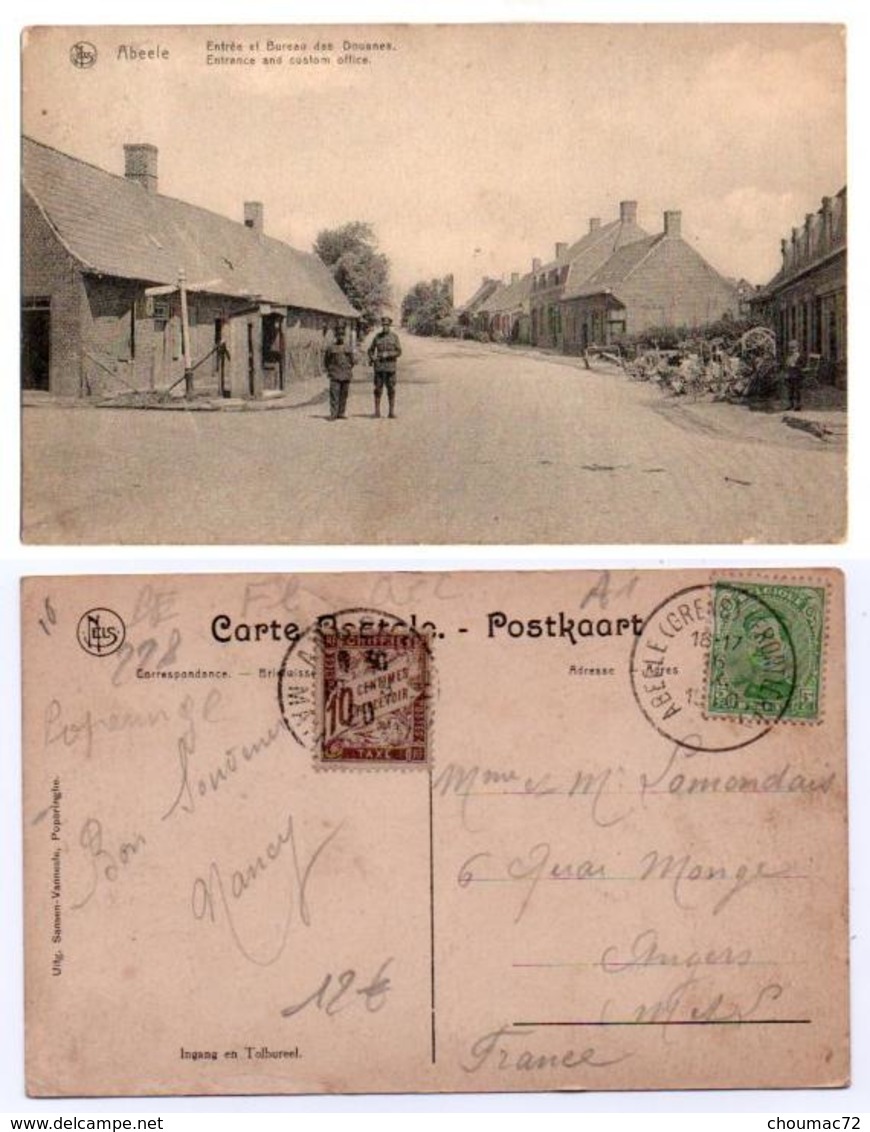 NELS
Abeele
Entrée et Bureau des Douanes.
Entrance and custom office.
NELS
Carte Postale. - Postkaart
Correspondance. — Briefwisse
Adresse
Adres
CHIFFRE
10
CENTIMES
A PERCEVOIR
TAXE
ABEELE (GRENS)
Poperinge
Bon Souvenir
Nancy
12€
Mme et Mr Lomondais
6 Quai Monge
Angers
M & L
France
Uitg. Sansen-Vanneste, Poperinghe.
Ingang en Tolbureel.
delcampe.net
choumac72